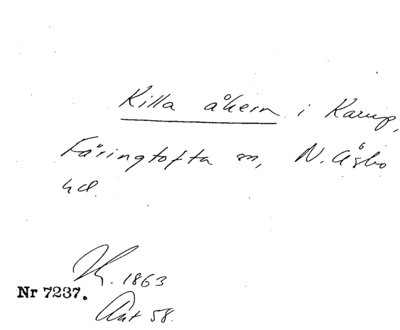 Killa åkern i Karup,
Färingtofta sn, N. Åsbo
hd.
1863
Nr 7237.
Akt 58.